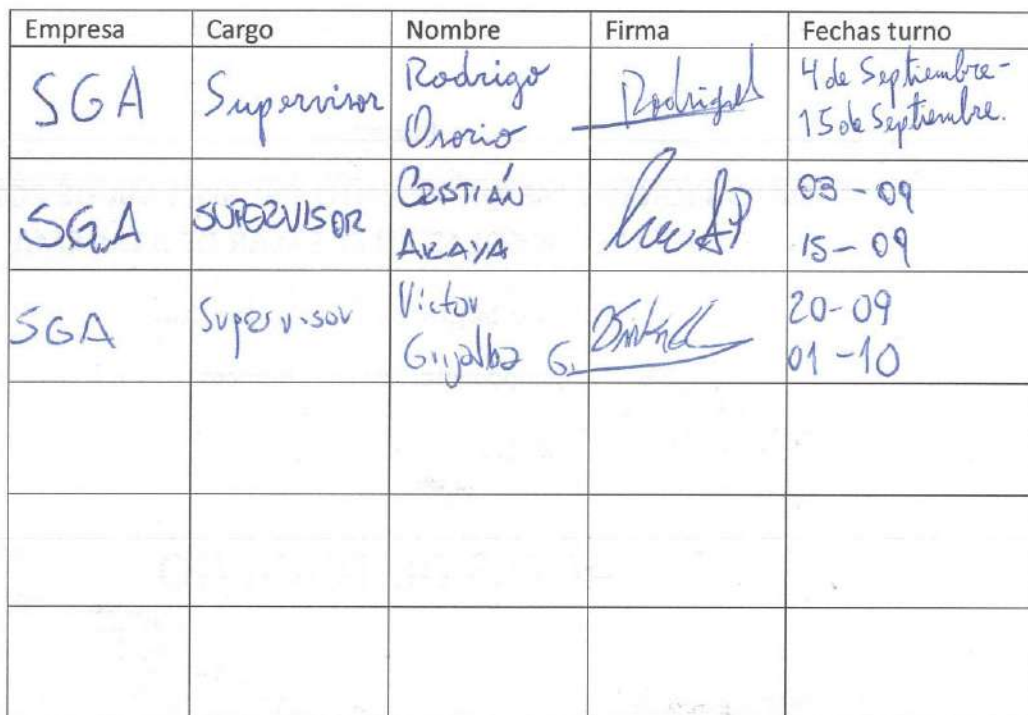 Empresa Cargo Nombre Firma Fechas turno
SGA Supervisor Rodrigo Osorio 4 de Septiembre-
15 de Septiembre.
SGA SUPERVISOR CRISTIÁN ARAYA 03-09
15-09
SGA Supervisor Victor Grijalba G. 20-09
01-10